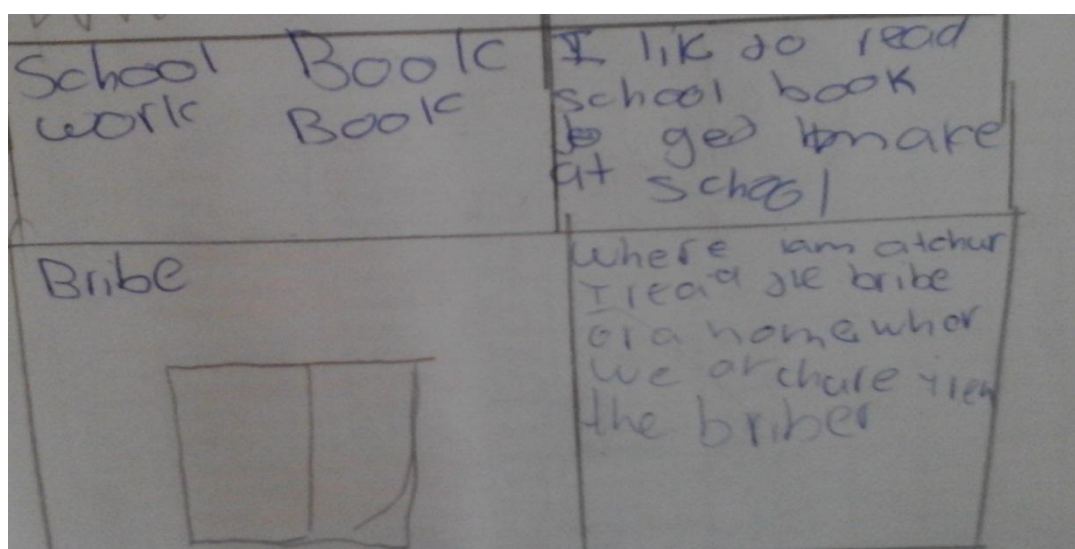 School Book
work Book
I lik to read
school book
to get make
at school
Bribe
where iam atchur
I read the bribe
or a home wher
we at chure I rea
the briber